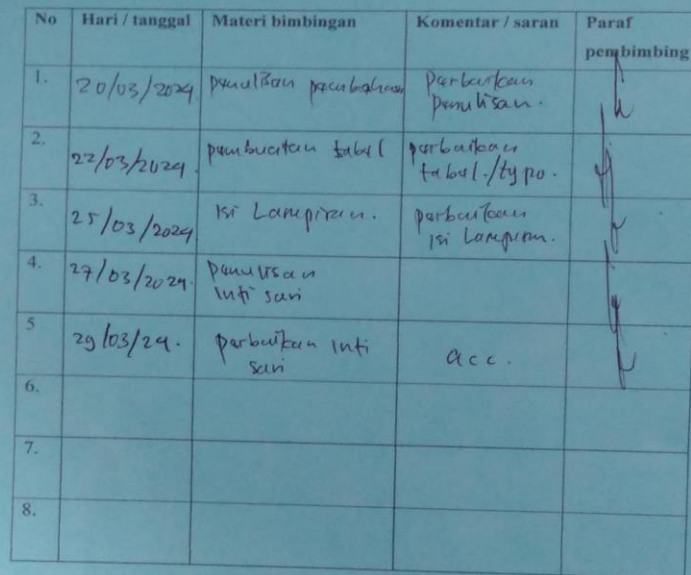 No Hari / tanggal Materi bimbingan Komentar / saran Paraf
pembimbing
1. 20/03/2024 penulisan pembahasan perbaikan
penulisan.
2. 22/03/2024. pembuatan tabel perbaikan
tabel./typo.
3. 25/03/2024 isi Lampiran. perbaikan
isi Lampiran.
4. 27/03/2024. penulisan
inti sari
5 29/03/24. perbaikan inti
sari acc.
6.
7.
8.